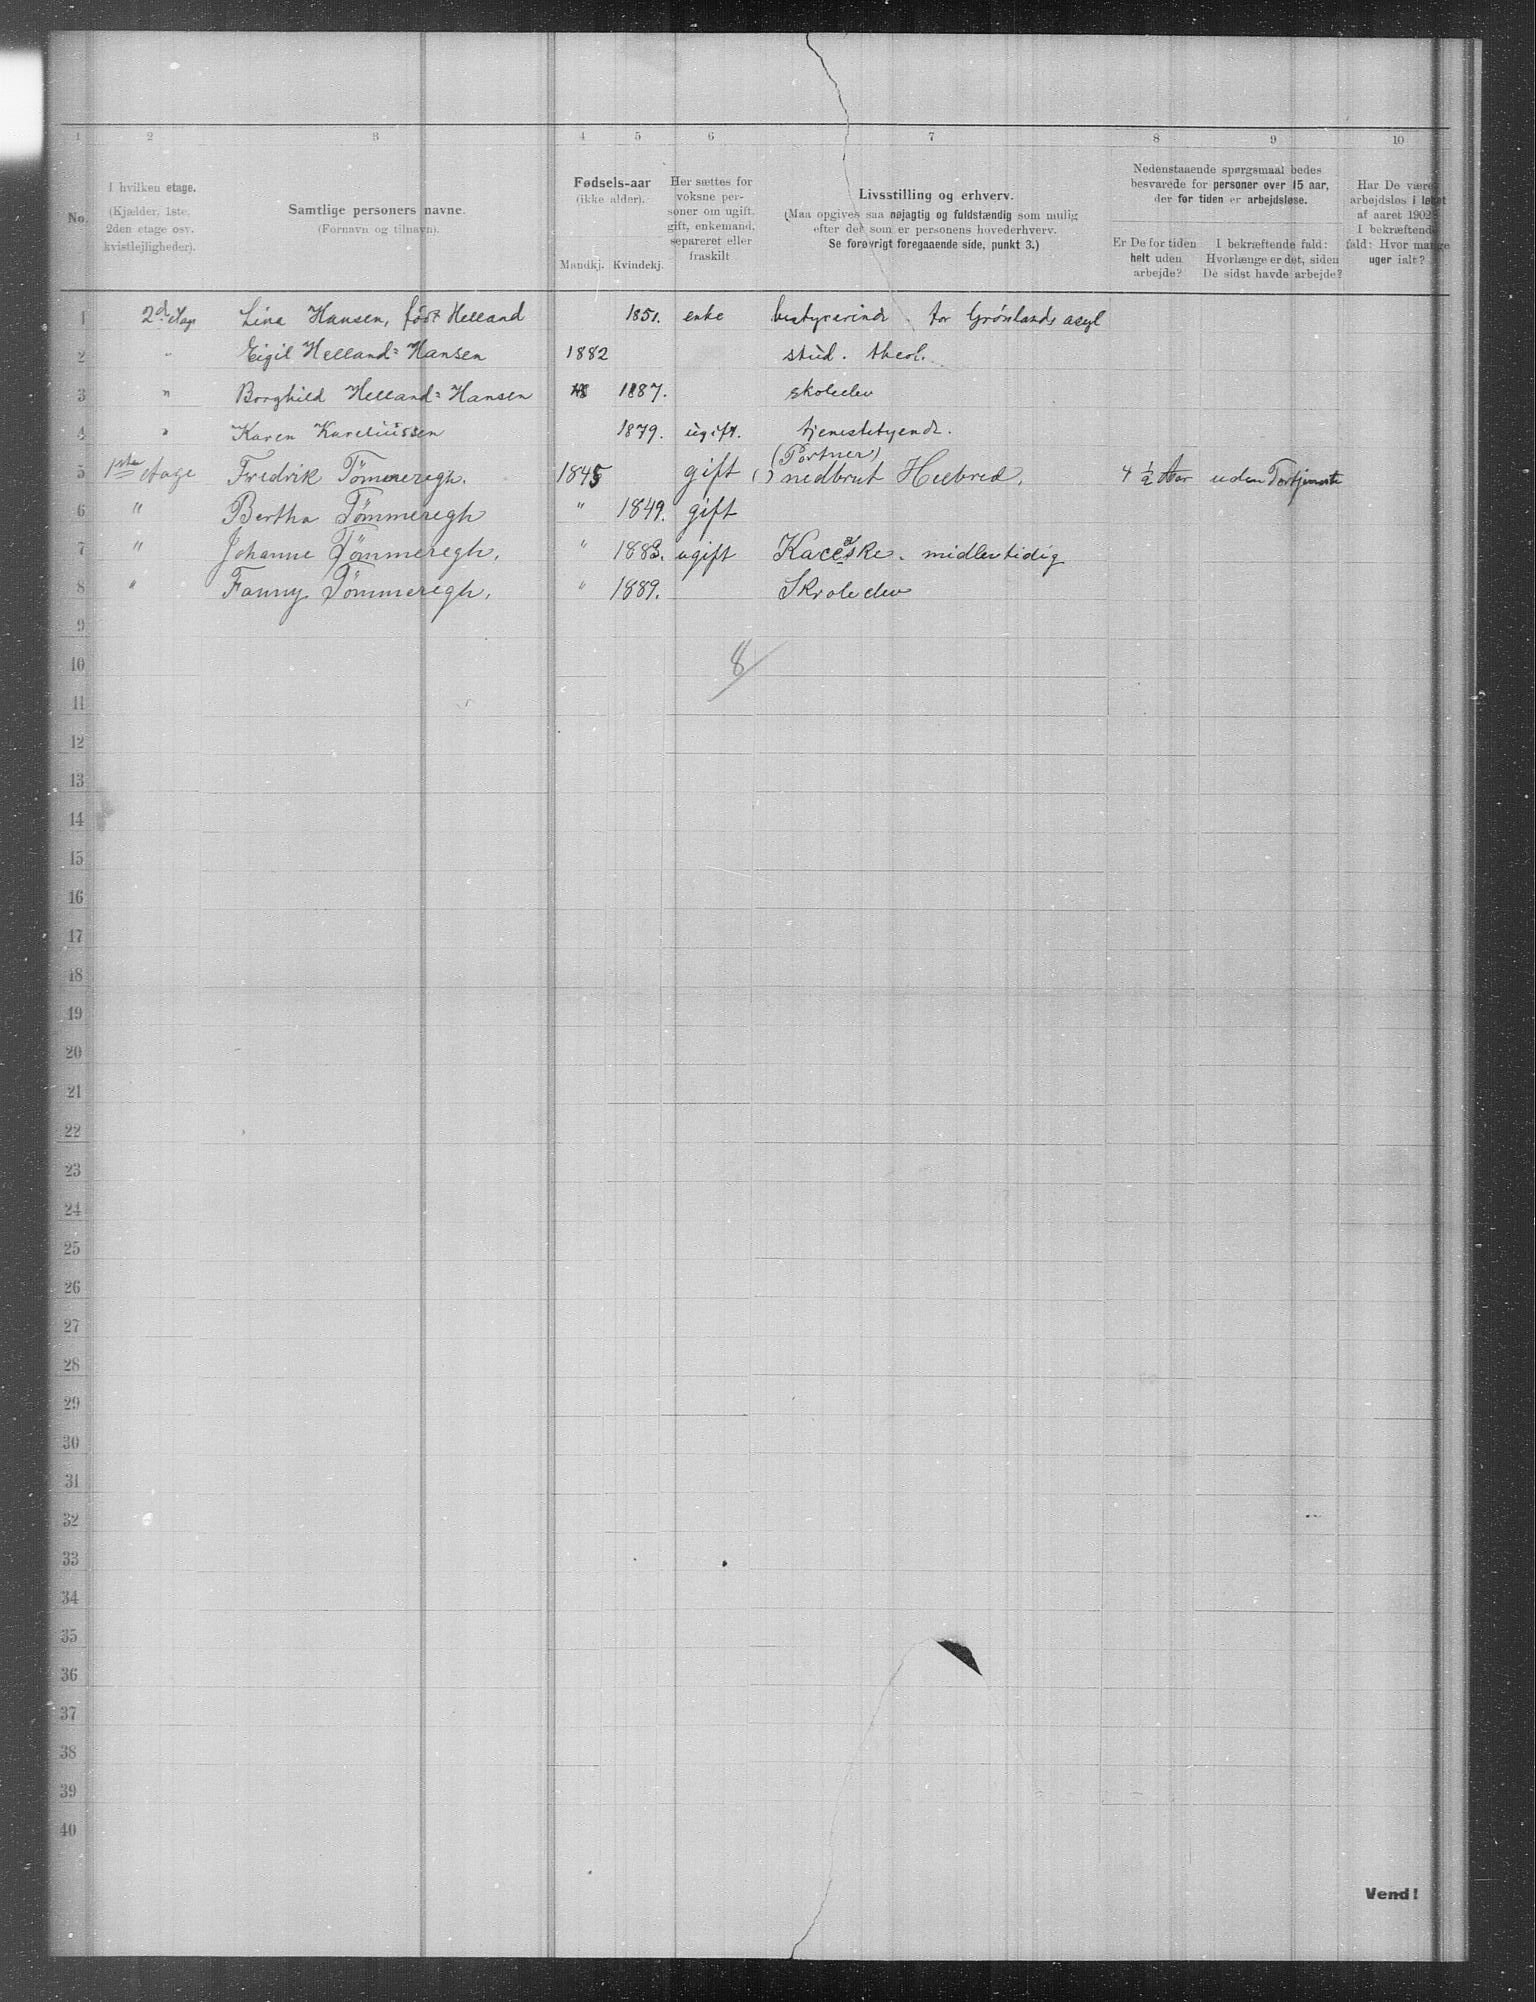 1 2 3 4 5 6 7 8 9 10
No.
I hvilken etage.
(Kjælder, 1ste,
2den etage osv.
kvistlejligheder).
Samtlige personers navne.
(Fornavn og tilnavn).
Fødsels-aar
(ikke alder).
Mandkj. Kvindekj.
Her sættes for
voksne per-
soner om ugift,
gift, enkemand,
separeret eller
fraskilt
Livsstilling og erhverv.
(Maa opgives saa nøjagtig og fuldstændig som mulig
efter det som er personens hovederhverv.
Se forøvrigt foregaaende side, punkt 3.)
Nedenstaaende spørgsmaal bedes
besvarede for personer over 15 aar,
der for tiden er arbejdsløse.
Er De for tiden
helt uden
arbejde?
I bekræftende fald:
Hvorlænge er det, siden
De sidst havde arbejde?
Har De være
arbejdsløs i løbet
af aaret 1902?
I bekræftende
fald: Hvor mange
uger ialt?
1 2d etage Lina Hansen, født Helland 1851. enke bestyrerinde for Grønlands asyl
2 " Eigil Helland=Hansen 1882 stud. theol.
3 " Borghild Helland=Hansen 1887. skoleelev
4 " Karen Kareliussen 1879. ugift. tjenestetyende.
(Portner)
5 1ste etage Fredrik Tömmeregh. 1845 gift ( ) nedbrut 4 1/2 Aar uden Fortjeneste
6 " Bertha Tömmeregh " 1849. gift
7 " Johanne Tömmeregh, " 1883. ugift midlertidig
8 " Fanny Tömmeregh, " 1889. Skoleelev
9
8
10
11
12
13
14
15
16
17
18
19
20
21
22
23
24
25
26
27
28
29
30
31
32
33
34
35
36
37
38
39
40
Vend!